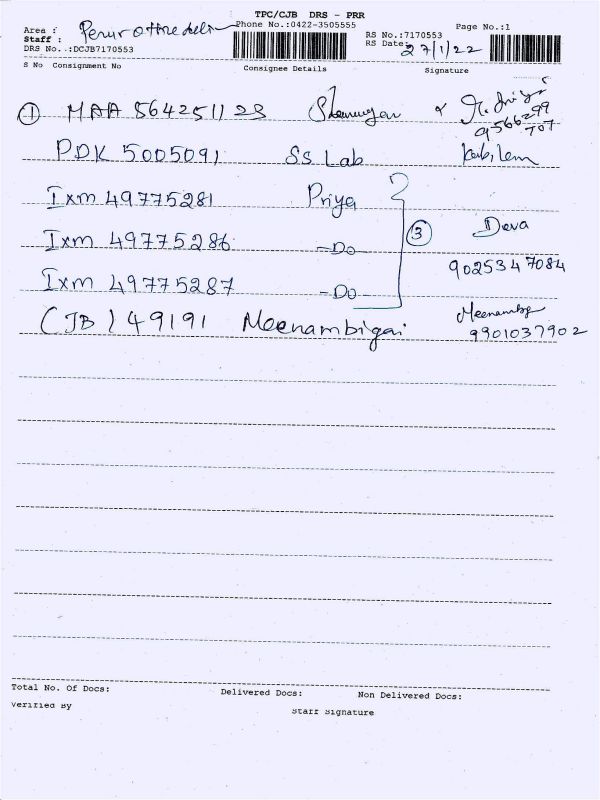 TPC/CJB DRS - PRR
Area : Perur
Phone No.:0422-3505555
Page No.:1
Staff :
RS No.:7170553
DRS No. .:DCJB7170553
RS Date: 27/1/22
S No Consignment No Consignee Details Signature
① MAA 564251123
9566299
707
PDK 5005091 SS Lab
Ixm 49775281 Priya
Ixm 49775286 -Do- ③ Deva
9025347084
Ixm 49775287 -Do-
CJB 149191 Meenambigai
9901037902
Total No. Of Docs: Delivered Docs: Non Delivered Docs:
Verified By Staff Signature